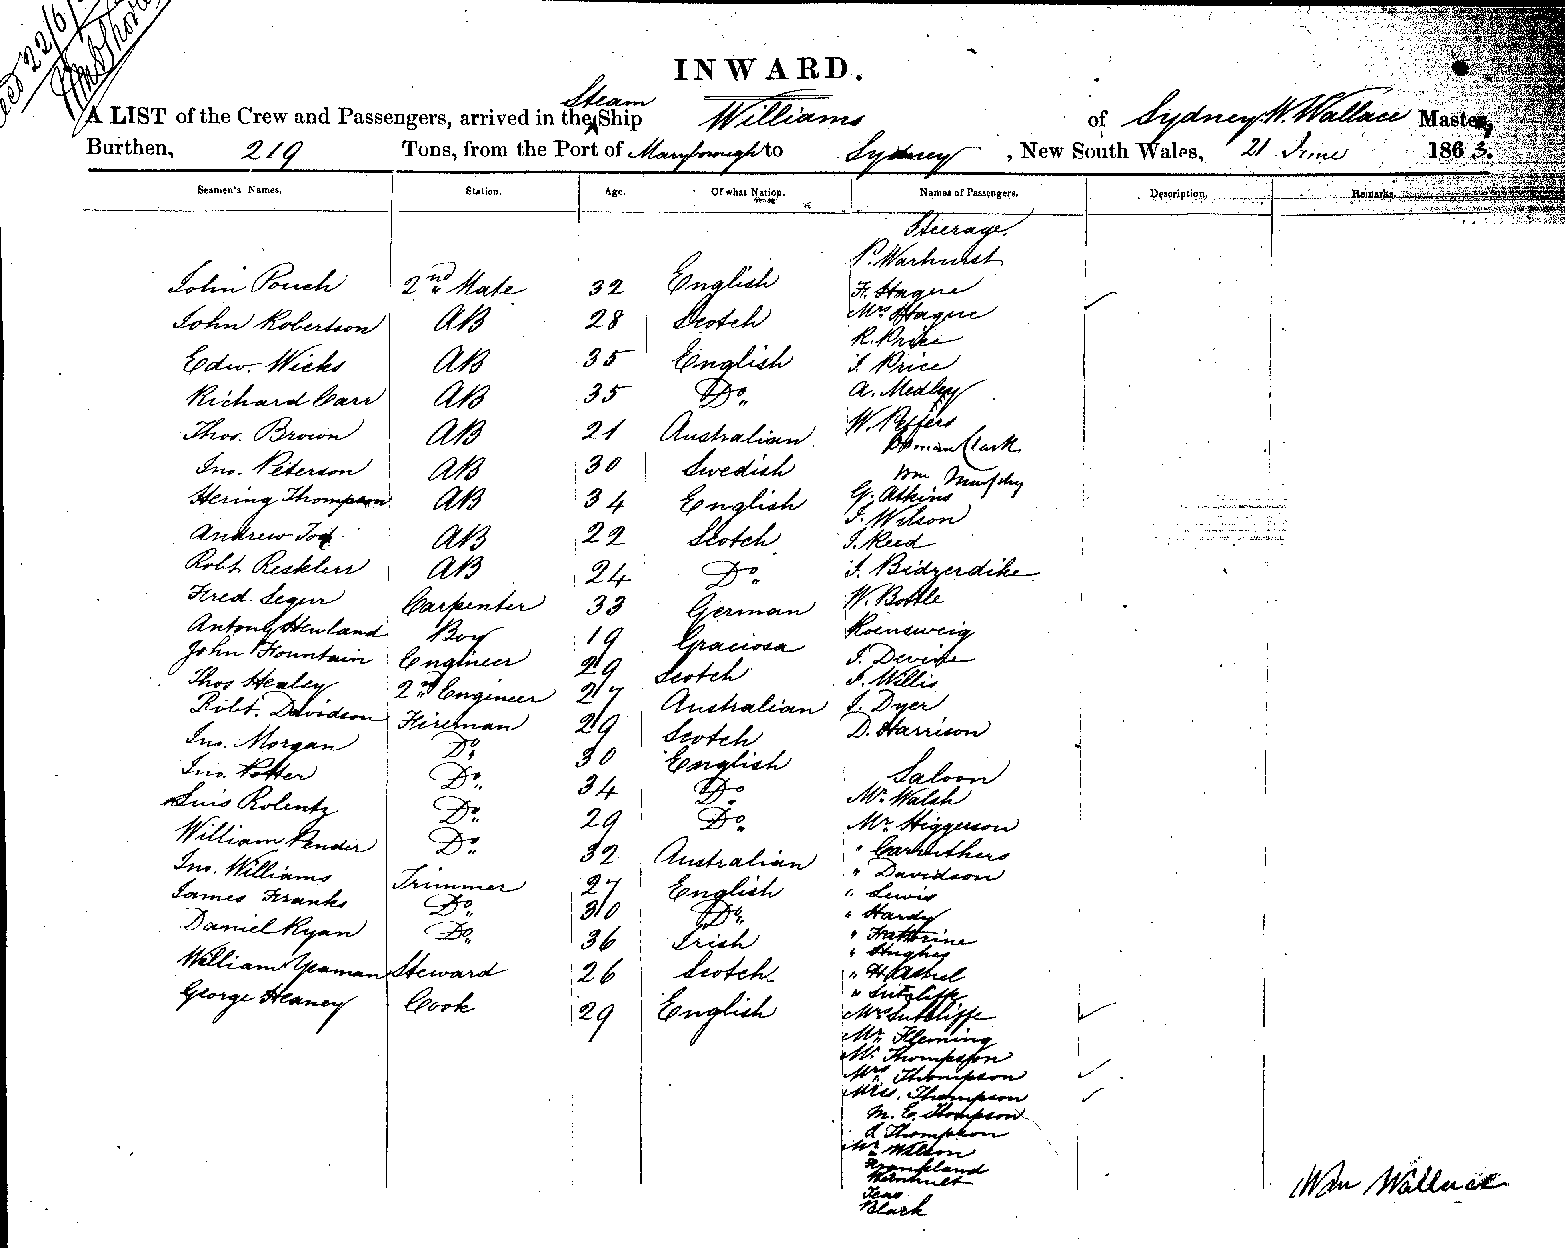 22/6/
INWARD.
A LIST of the Crew and Passengers, arrived in the Steam Ship Williams of Sydney W. Wallace Master,
Burthen, 219 Tons, from the Port of Maryborough to Sydney, New South Wales, 21 June 1863.
Seamen's Names. Station. Age. Of what Nation. Names of Passengers. Description. Remarks.
John Pouch 2nd Mate 32 English
John Robertson AB 28 Scotch
Edw. Wicks AB 35 English
Richard Carr AB 35 Do
Thos. Brown AB 21 Australian
Jno. Peterson AB 30 Swedish
Hering Thompson AB 34 English
Andrew Tod AB 22 Scotch
Robt AB 24 Do
Fred Segur Carpenter 33 German
Antony Henland Boy 19 Graciosa
John Fountain Engineer 29 Scotch
Thos Healey 2nd Engineer 27 Australian
Robt. Davidson Fireman 29 Scotch
Jno. Morgan Do 30 English
Jno. Potter Do 34 Do
Luis Rolentz Do 29 Do
William Pender Do 32 Australian
Jno. Williams Trimmer 27 English
James Franks Do 30 Do
Daniel Ryan Do 36 Irish
William Yeaman Steward 26 Scotch
George Heaney Cook 29 English
Steerage.
P. Warhurst
F. Hague
Mrs Hague
R. Price
J. Price
A. Medley
W. Peffers
Clark
Wm Murphy
G. Atkins
J. Wilson
J. Reed
J. Bidzerdike
W. Bottle
Roensweig
J. Devine
J. Willis
J. Dyer
D. Harrison
Saloon
Mr. Walsh
Mr. Higgerson
" Carruthers
" Davidson
" Lewis
" Hardy
" Katherine
" Hughes
"
" Sutcliffe
Mrs Sutcliffe
Mr. Fleming
Mr. Thompson
Mrs Thompson
Mrs. Thompson
M. E. Thompson
Thompson
Mr Wilson
Frankland
Black
Wm Wallace